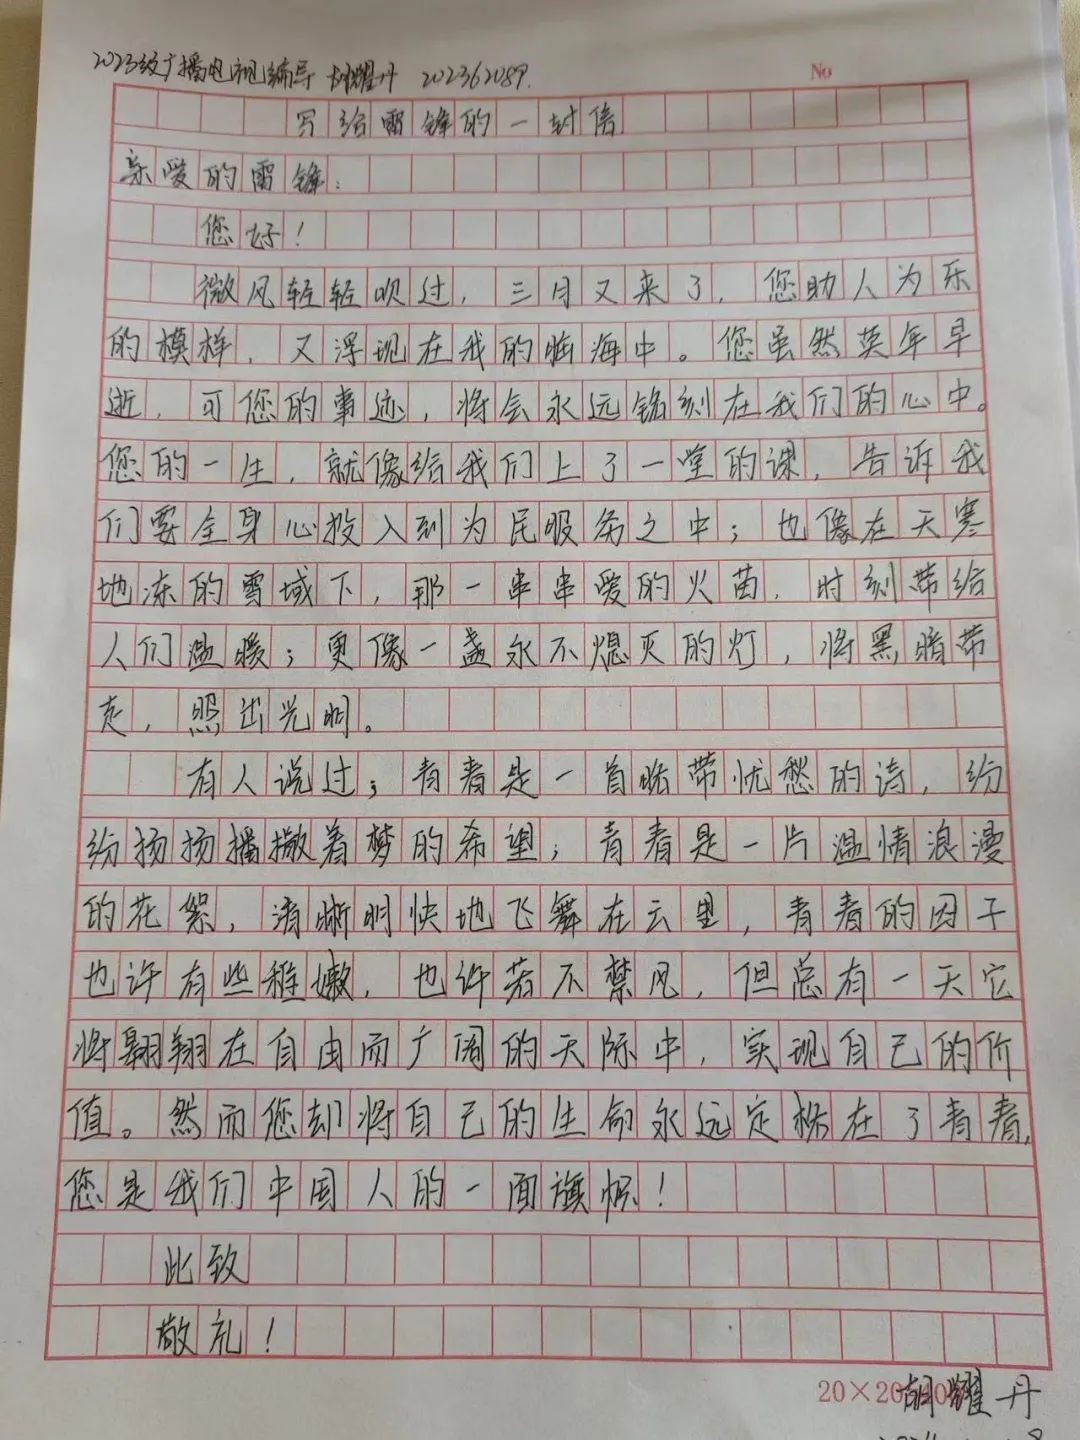 2023级广播电视编导 胡耀丹 202362089.
No
写给雷锋的一封信
亲爱的雷锋:
您好!
微风轻轻吹过,三月又来了,您助人为乐
的模样,又浮现在我的脑海中。您虽然英年早
逝,可您的事迹,将会永远铭刻在我们的心中。
您的一生,就像给我们上了一堂的课,告诉我
们要全身心投入到为民服务之中;也像在天寒
地冻的雪域下,那一串串爱的火苗,时刻带给
人们温暖;更像一盏永不熄灭的灯,将黑暗带
走,照出光明。
有人说过;青春是一首略带忧愁的诗,纷
纷扬扬播撒着梦的希望;青春是一片温情浪漫
的花絮,清晰明快地飞舞在云里,青春的因子
也许有些稚嫩,也许若不禁风,但总有一天它
将翱翔在自由而广阔的天际中,实现自己的价
值。然而您却将自己的生命永远定格在了青春,
您是我们中国人的一面旗帜!
此致
敬礼!
20×20
胡耀丹